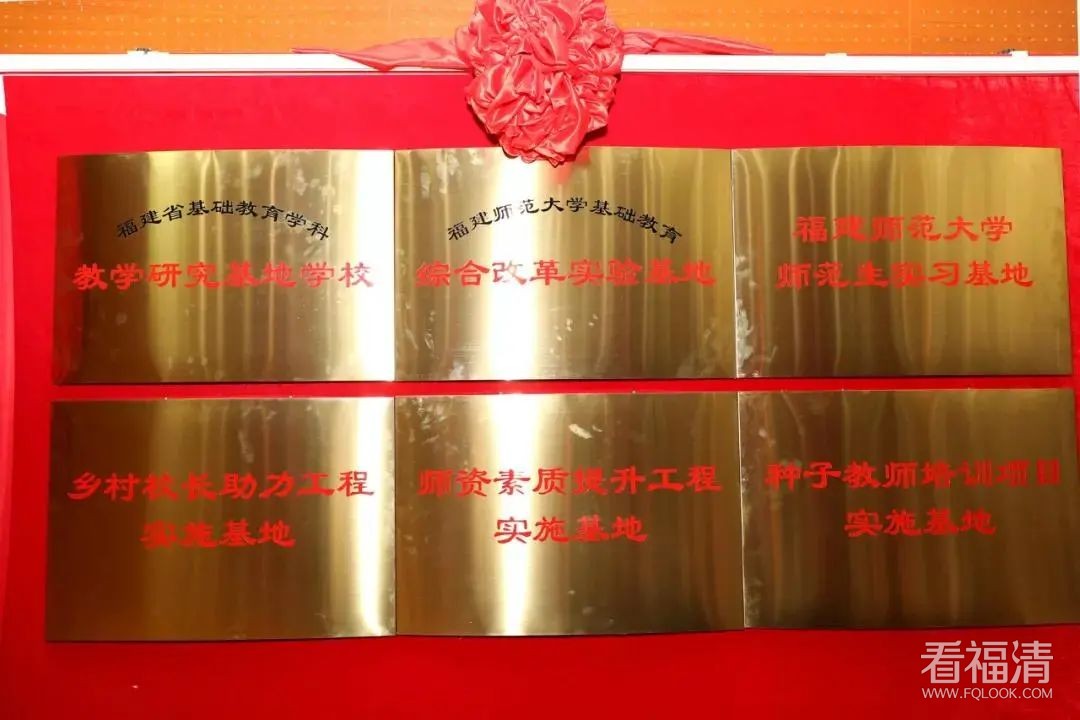 福建省基础教育学科
教学研究基地学校
福建师范大学基础教育
综合改革实验基地
福建师范大学
师范生实习基地
乡村校长助力工程
实施基地
师资素质提升工程
实施基地
种子教师培训项目
实施基地
看福清
WWW.FQLOOK.COM